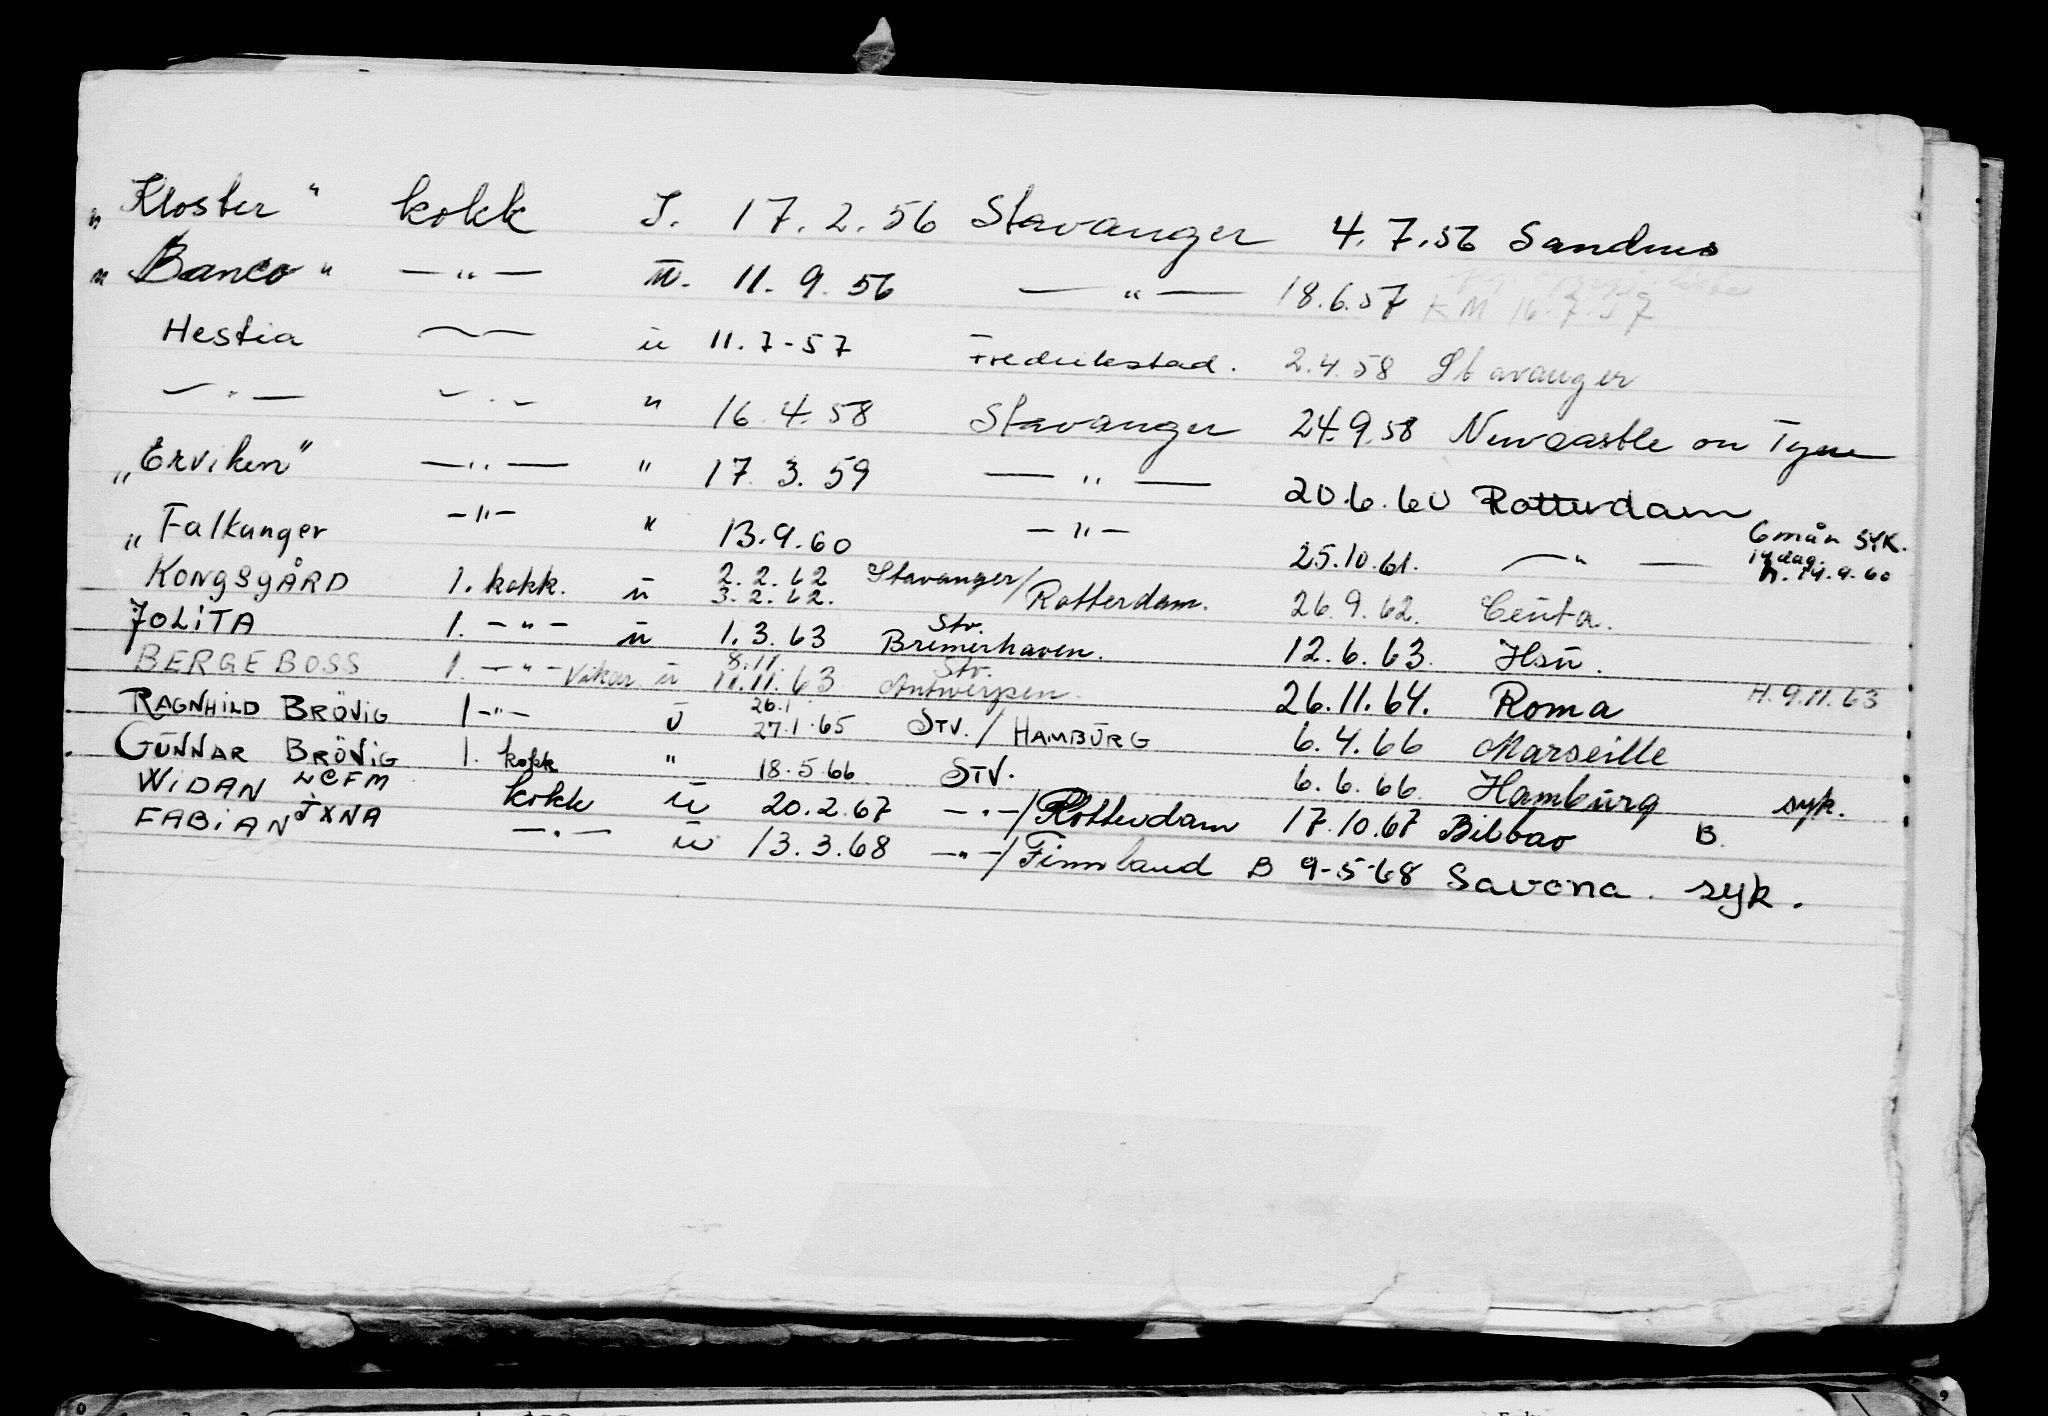 „ Kloster " kokk I. 17.2.56 Stavanger 4.7.56 Sandnes
„ Banco " — " — ū. 11.9.56 — " — 18.6.57 KM 16.7.57
Hestia — — ū 11.7-57 Fredrikstad. 2.4.58 Stavanger
— " — — . — " 16.4.58 Stavanger 24.9.58 Newcastle on Tyne
„Erviken" — " — " 17.3.59 — " — 20.6.60 Rotterdam
„ Falkanger — " — " 13.9.60 — " — 25.10.61. — " — 6 mån SYK. 14 dag. h. 14.9.60
KONGSGÅRD 1. kokk. ū 2.2.62 3.2.62. Stavanger/ Rotterdam. 26.9.62. Ceuta.
JOLITA 1. — " — ū 1.3.63 Stv. Bremerhaven. 12.6.63. Hsū.
BERGEBOSS 1. — " — Vikar ū 8.11. 11.11.63 Stv. Antwerpen. 26.11.64. Roma H. 9.11.63
RAGNHILD BRÖVIG 1 — " — ū 26.1 27.1.65 STV. / HAMBŪRG 6.4.66 Marseille
GŪNNAR BRÖVIG 1. kokk " 18.5.66 STV. 6.6.66 Hamburg syk.
WIDAN LCFM kokk ū 20.2.67 — " — / Rotterdam 17.10.67 Bilbao B.
FABIAN JXNA — " — ū 13.3.68 — " — / Finnland B 9-5-68 Savona. syk.